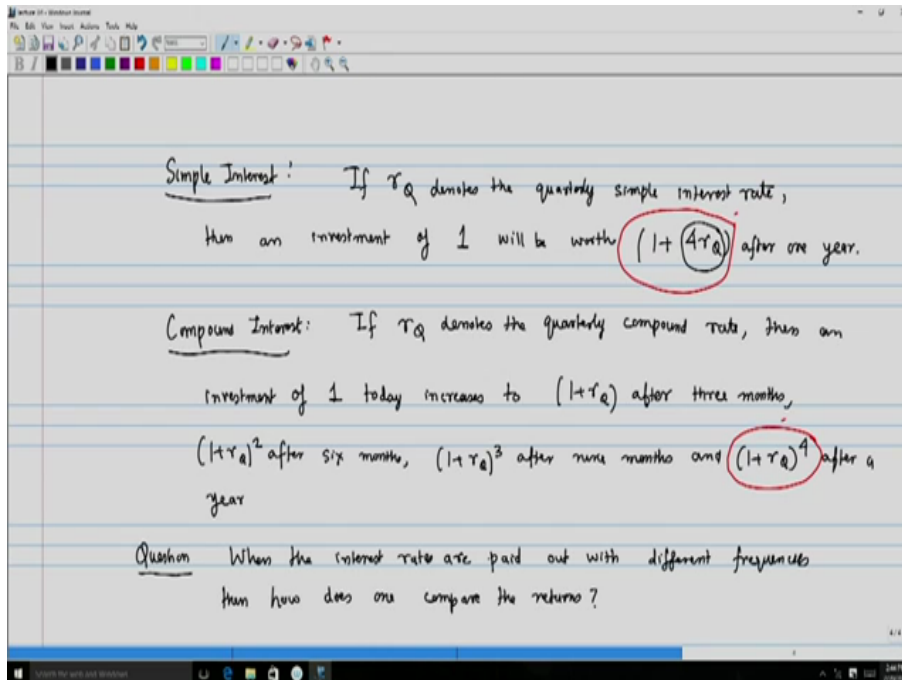 File Edit View Insert Actions Tools Help
B I
Simple Interest : If r_Q denotes the quarterly simple interest rate,
then an investment of 1 will be worth (1+ 4r_Q) after one year.
Compound Interest : If r_Q denotes the quarterly compound rate, then an
investment of 1 today increases to (1+r_Q) after three months,
(1+r_Q)^2 after six months, (1+r_Q)^3 after nine months and (1+r_Q)^4 after a
year
Question When the interest rates are paid out with different frequencies
then how does one compare the returns ?
4/4